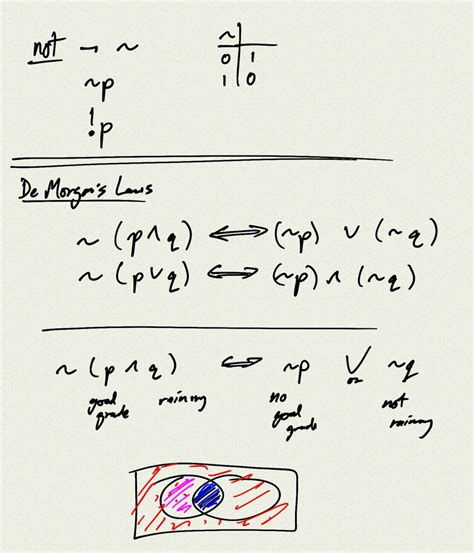 not → ~
~
0 1
1 0
~p
!p
De Morgan's Laws
~ (p ∧ q) ⟺ (~p) ∨ (~q)
~ (p ∨ q) ⟺ (~p) ∧ (~q)
~ (p ∧ q) ⟺ ~p ∨ ~q
or
good grade raining no good grade not raining